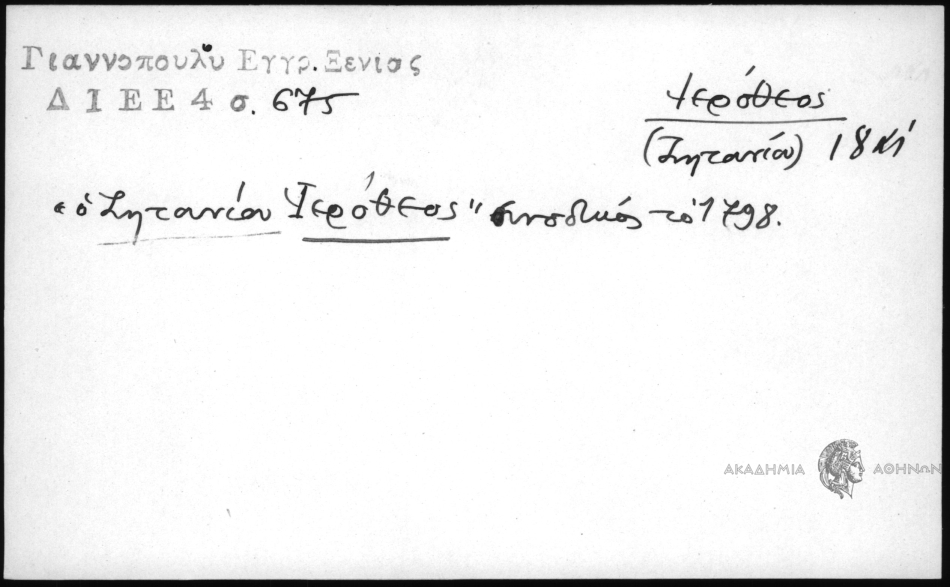 Γιαννοπουλου Εγγρ. Ξενίας
Δ Ι Ε Ε 4 σ. 675
Ἱερόθεος
(Ζητουνίου) 18 κἑ
"ὁ Ζητουνίου Ἱερόθεος" συνοδικός τὸ 1798.
ΑΚΑΔΗΜΙΑ ΑΘΗΝΩΝ